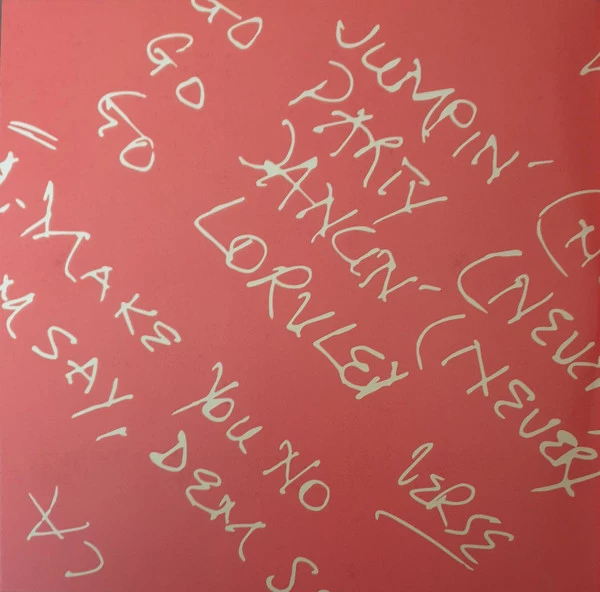 GO
GO
GO
JUMPIN'
PARTY
DANCIN' (NEVER
LORULEY (NEVER
MAKE YOU NO
SAY, DEM
VERSE